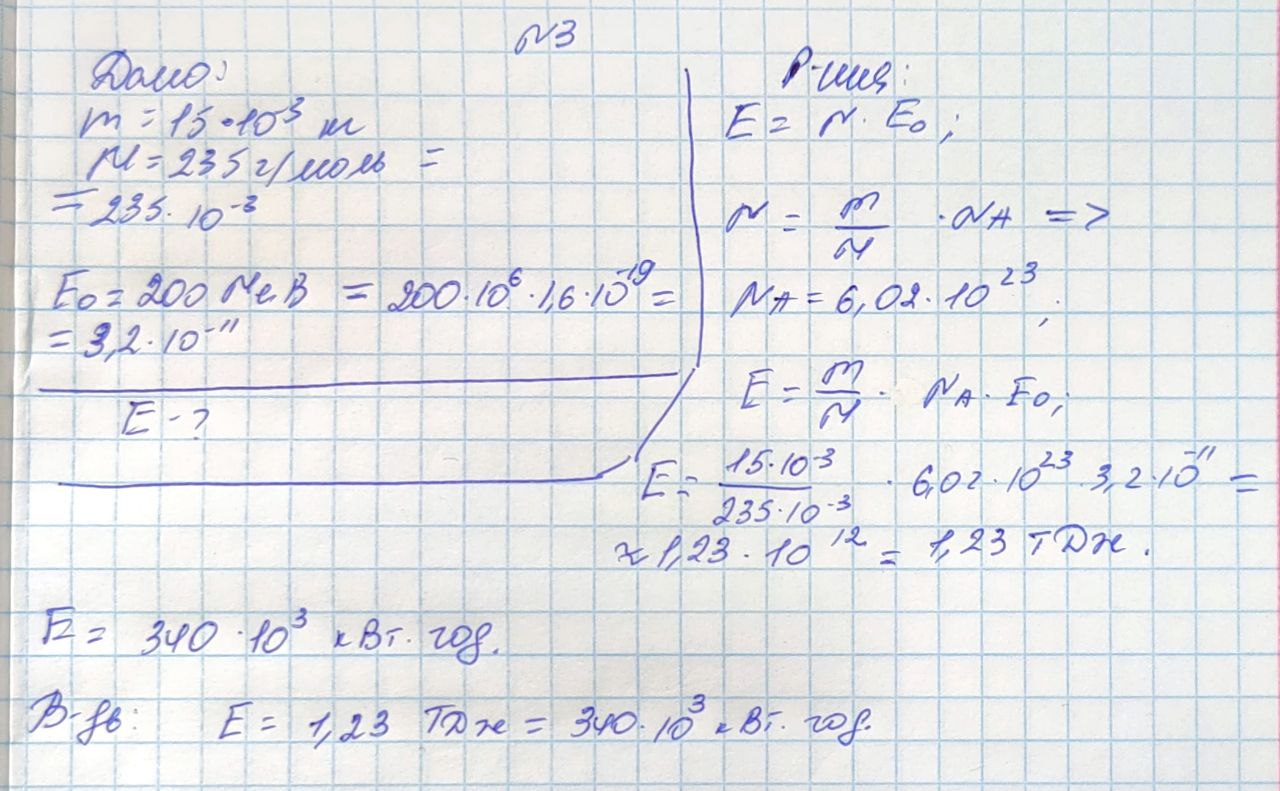 №3
Дано:
m = 15·10⁻³ кг
M = 235 г/моль =
= 235·10⁻³
E₀ = 200 МеВ = 200·10⁶·1,6·10⁻¹⁹ =
= 3,2·10⁻¹¹
E - ?
Р-ння:
E = N·E₀;
N = m/M · NA =>
NA = 6,02·10²³;
E = m/M · NA·E₀;
E = 15·10⁻³/235·10⁻³ · 6,02·10²³·3,2·10⁻¹¹ =
≈ 1,23·10¹² = 1,23 ТДж.
E = 340·10³ кВт·год.
В-дь: E = 1,23 ТДж = 340·10³ кВт·год.